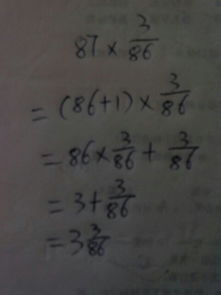 87 × 3/86
= (86+1) × 3/86
= 86 × 3/86 + 3/86
= 3 + 3/86
= 3 3/86